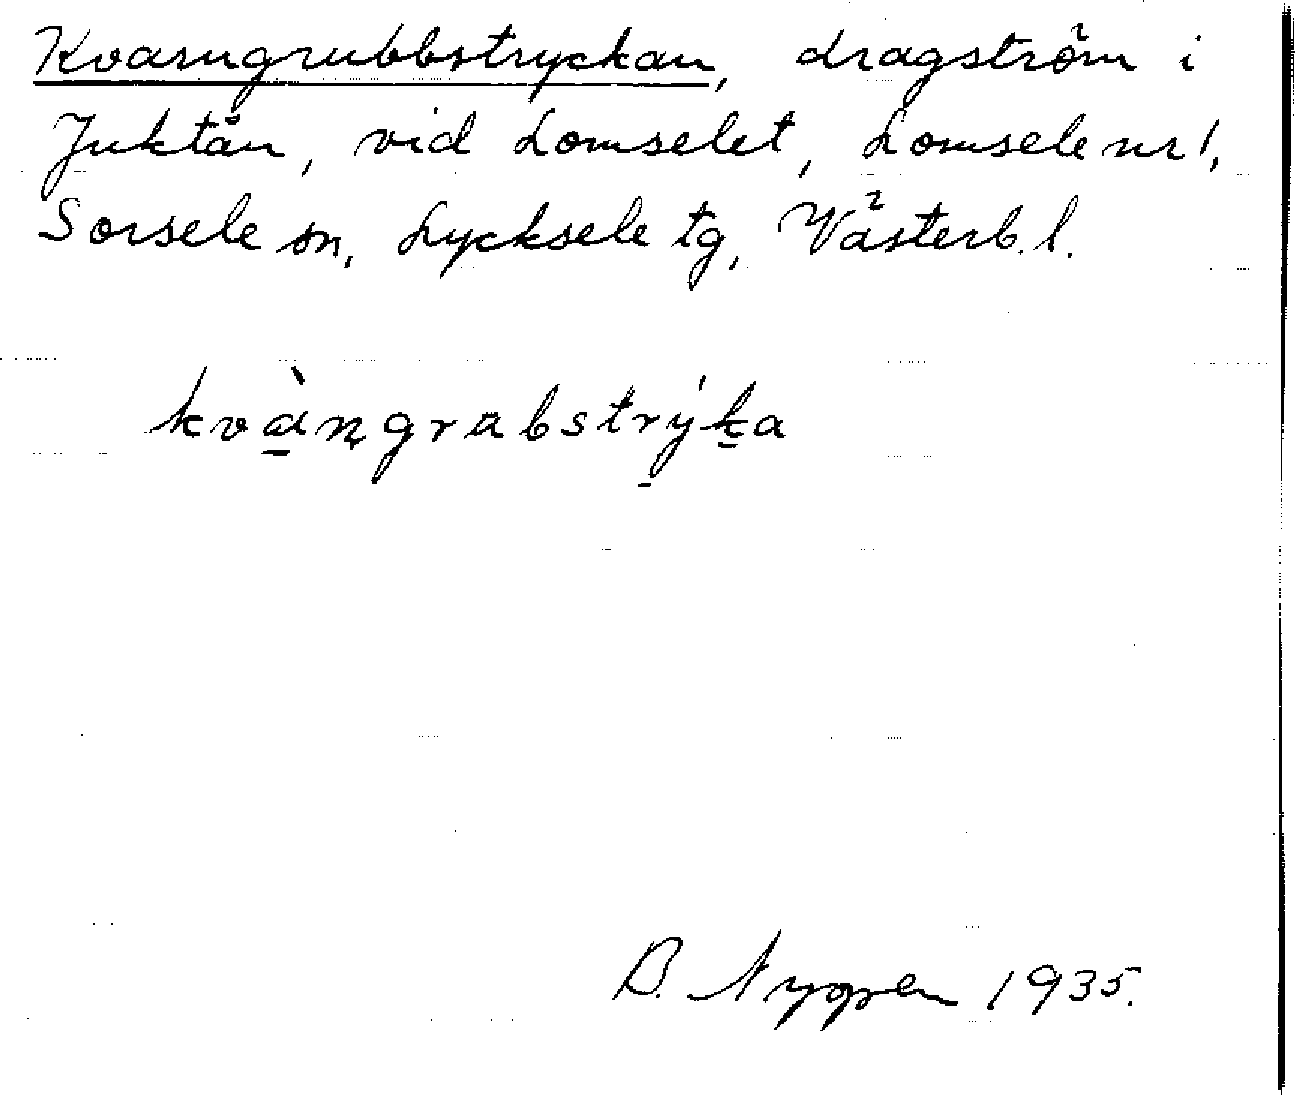 Kvarngrubbstryckan, dragström i
Juktån, vid Lomselet, Lomsele nr 1,
Sorsele sn, Lycksele tg, Västerb. l.
kvà̱ṇgrabstrý̱ḵa
B. Nyggren 1935.